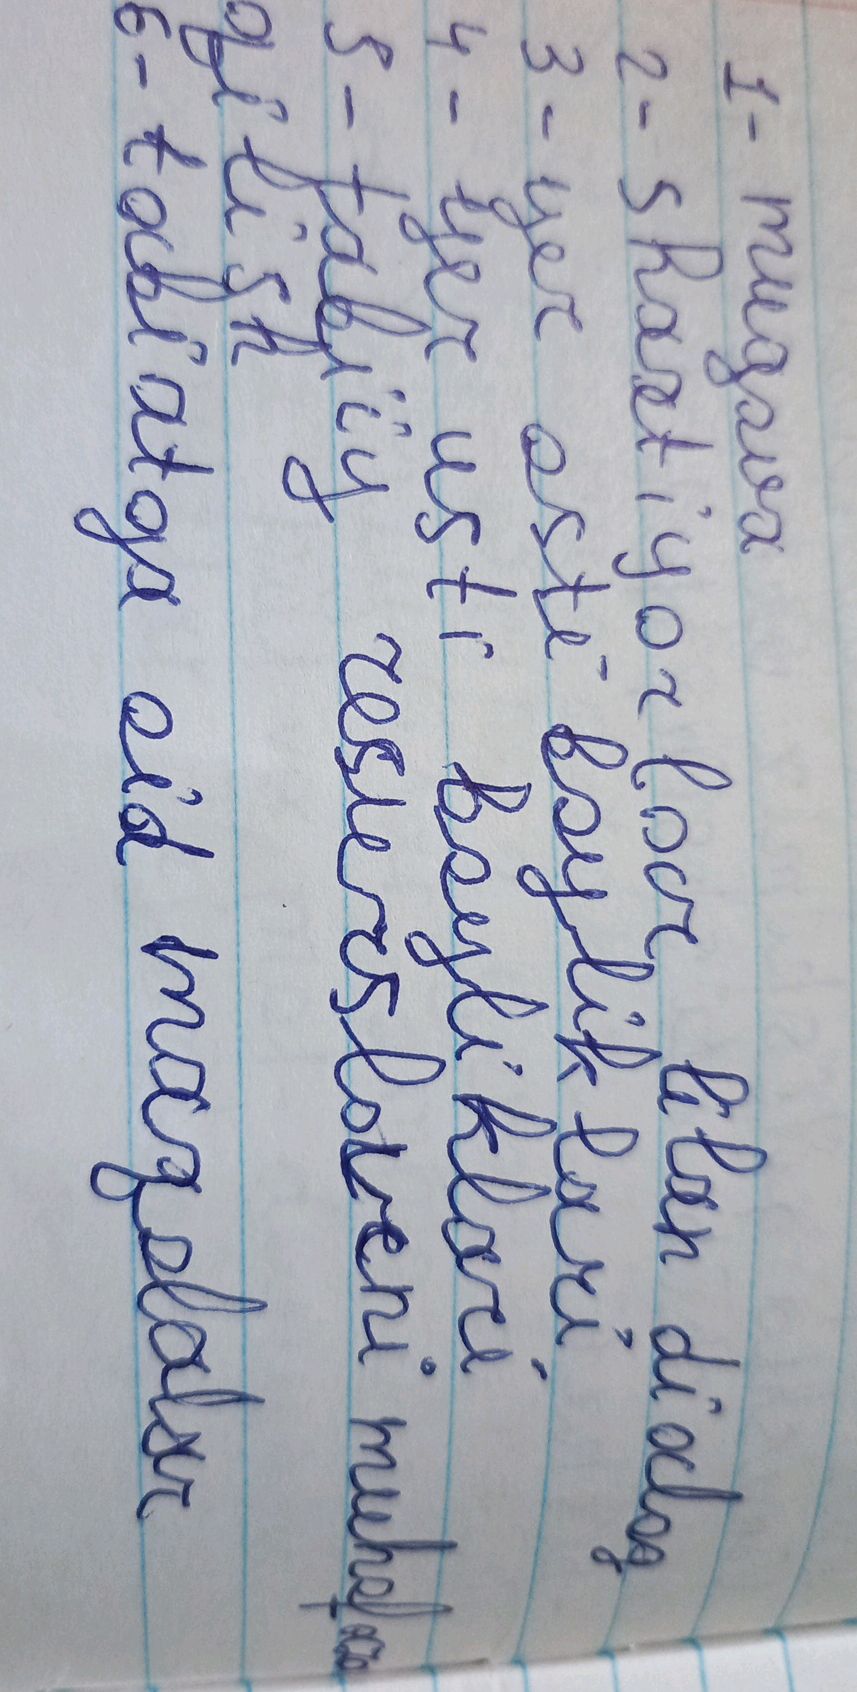 1- muqova
2- shartiyorlar bilan dialog
3- yer osti boyliklari
4- yer usti boyliklari
5- tabiiy resurslarni muhofaza
qilish
6- tabiatga oid maqolalar